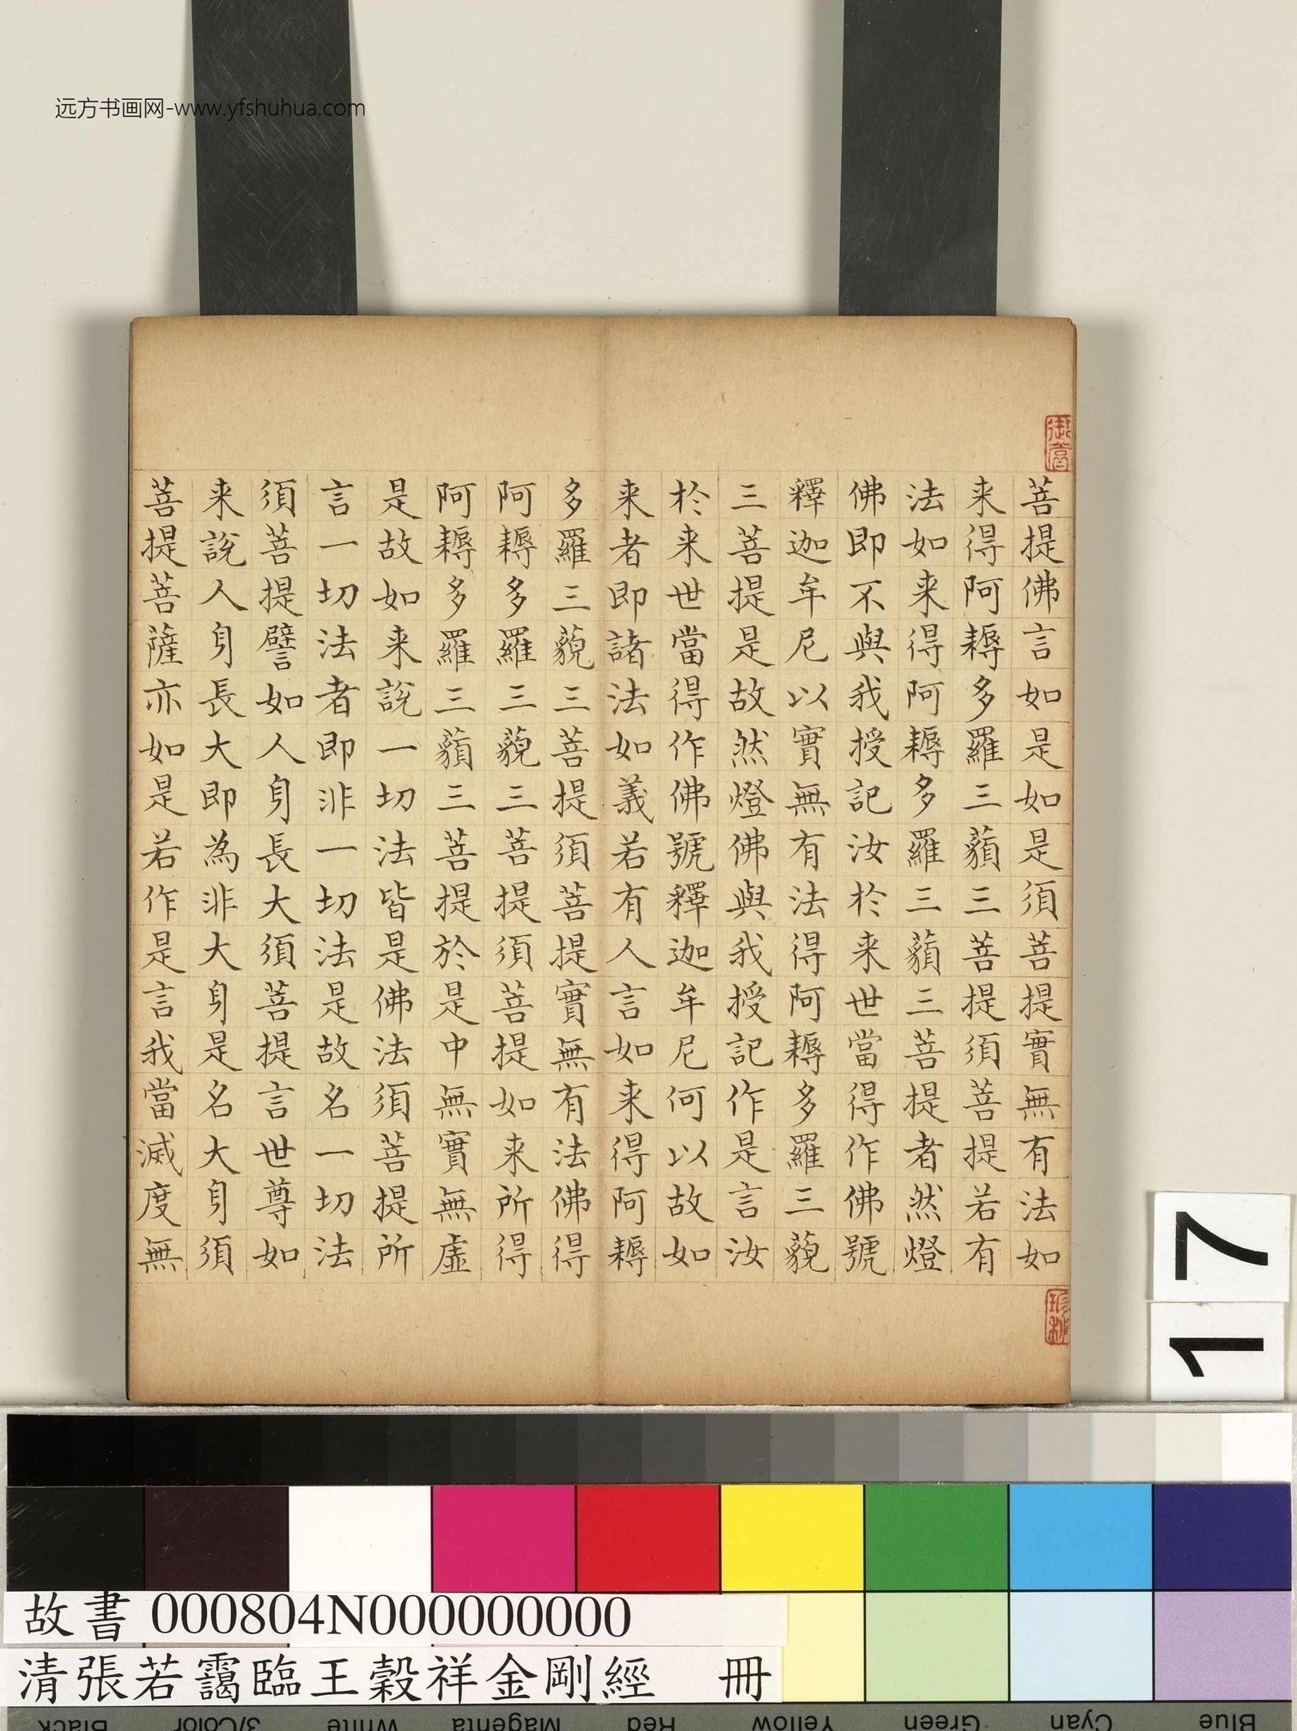 远方书画网-www.yfshuhua.com
菩提佛言如是如是須菩提實無有法如
来得阿耨多羅三藐三菩提須菩提若有
法如来得阿耨多羅三藐三菩提者然燈
佛即不與我授記汝於来世當得作佛號
釋迦牟尼以實無有法得阿耨多羅三藐
三菩提是故然燈佛與我授記作是言汝
於来世當得作佛號釋迦牟尼何以故如
来者即諸法如義若有人言如来得阿耨
多羅三藐三菩提須菩提實無有法佛得
阿耨多羅三藐三菩提須菩提如来所得
阿耨多羅三藐三菩提於是中無實無虛
是故如来說一切法皆是佛法須菩提所
言一切法者即非一切法是故名一切法
須菩提譬如人身長大須菩提言世尊如
来說人身長大即為非大身是名大身須
菩提菩薩亦如是若作是言我當滅度無
17
故書 000804N000000000
清張若靄臨王穀祥金剛經 冊
Black 3/Color White Magenta Red Yellow Green Cyan Blue